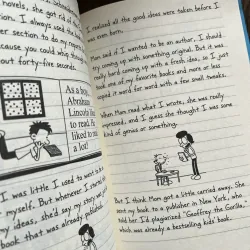 novels, she got rid of the
r section to do my report
because you could whip through
bout forty-five seconds.
As a boy,
Abraham
Lincoln liked
to read. He
liked to read
a lot!
I was little, I used to
r myself. But whenever I
my ideas, she'd say my story
book that was already published.
I realized all the good ideas were taken before I
was even born.
Mom said if I wanted to be an author, I should
try coming up with something original. But it was
really hard coming up with a fresh idea, so I just
took one of my favorite books and more or less
copied it word for word with a few small tweaks.
When Mom read what I wrote, she was really
impressed, and I guess she thought I was some
kind of genius or something.
But I think Mom got a little carried away. She
sent my book to a publisher in New York, who
told her I'd plagiarized "Geoffrey the Gorilla,"
which was already a bestselling kids' book.